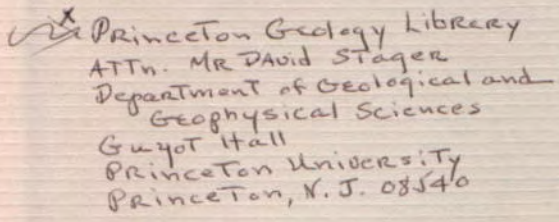 x Princeton Geology Library
ATTn. MR David Stager
Department of Geological and
Geophysical Sciences
Guyot Hall
Princeton University
Princeton, N.J. 08540